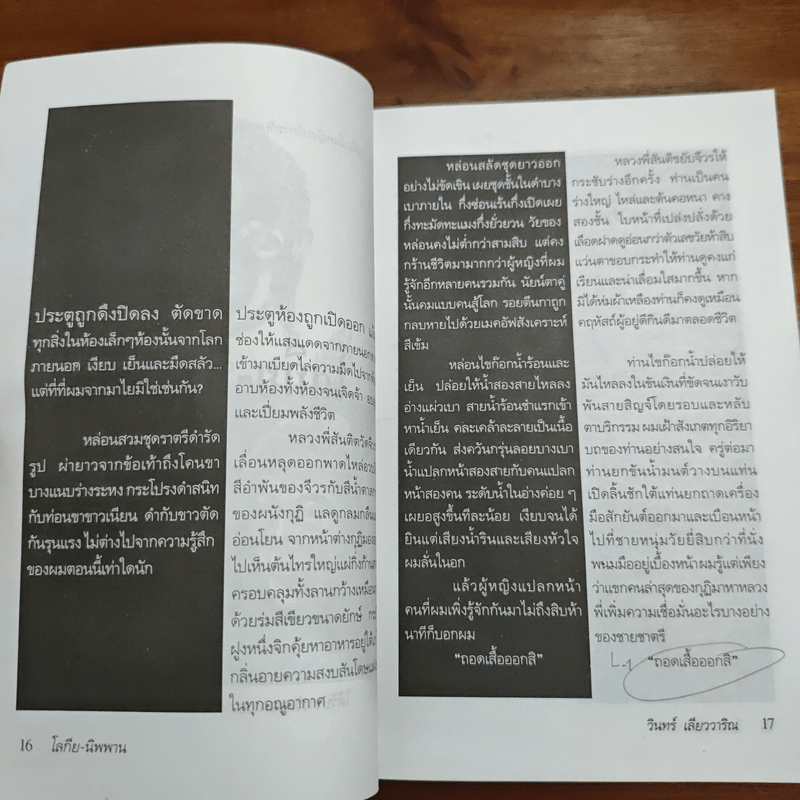 ประตูถูกดึงปิดลง ตัดขาด
ทุกสิ่งในห้องเล็กๆห้องนั้นจากโลก
ภายนอก เงียบ เย็นและมืดสลัว...
แต่ที่ที่ผมจากมาไยมิใช่เช่นกัน?
หล่อนสวมชุดราตรีดำรัด
รูป ผ่ายาวจากข้อเท้าถึงโคนขา
บางแนบร่างระหง กระโปรงดำสนิท
กับท่อนขาขาวเนียน ดำกับขาวตัด
กันรุนแรง ไม่ต่างไปจากความรู้สึก
ของผมตอนนี้เท่าใดนัก
ประตูห้องถูกเปิดออก
ช่องให้แสงแดดจากภายนอก
เข้ามาเบียดไล่ความมืดไปจาก
อาบห้องทั้งห้องจนเจิดจ้า
และเปี่ยมพลังชีวิต
หลวงพี่สันติตวัดจีว
เลื่อนหลุดออกพาดไหล่
สีอำพันของจีวรกับสีน้ำตาล
ของผนังกุฏิ แลดูกลมกลืน
อ่อนโยน จากหน้าต่างกุฏิมอง
ไปเห็นต้นไทรใหญ่แผ่กิ่งก้าน
ครอบคลุมทั้งลานกว้างเหมือน
ด้วยร่มสีเขียวขนาดยักษ์
ฝูงหนึ่งจิกคุ้ยหาอาหารอยู่ใต้
กลิ่นอายความสงบสันโดษ
ในทุกอณูอากาศ
16 โลกีย-นิพพาน
หล่อนสลัดชุดยาวออก
อย่างไม่ขัดเขิน เผยชุดชั้นในดำบาง
เบาภายใน กึ่งซ่อนเร้นกึ่งเปิดเผย
กึ่งทะมัดทะแมงกึ่งยั่วยวน วัยของ
หล่อนคงไม่ต่ำกว่าสามสิบ แต่คง
กร้านชีวิตมามากกว่าผู้หญิงที่ผม
รู้จักอีกหลายคนรวมกัน นัยน์ตาคู่
นั้นคมแบบคนสู้โลก รอยตีนกาถูก
กลบหายไปด้วยเมคอัพสังเคราะห์
สีเข้ม
หล่อนไขก๊อกน้ำร้อนและ
เย็น ปล่อยให้น้ำสองสายไหลลง
อ่างแผ่วเบา สายน้ำร้อนชำแรกเข้า
หาน้ำเย็น คละเคล้าละลายเป็นเนื้อ
เดียวกัน ส่งควันกรุ่นลอยบางเบา
น้ำแปลกหน้าสองสายกับคนแปลก
หน้าสองคน ระดับน้ำในอ่างค่อย ๆ
เผยอสูงขึ้นทีละน้อย เงียบจนได้
ยินแต่เสียงน้ำรินและเสียงหัวใจ
ผมลั่นในอก
แล้วผู้หญิงแปลกหน้า
คนที่ผมเพิ่งรู้จักกันมาไม่ถึงสิบห้า
นาทีก็บอกผม
“ถอดเสื้อออกสิ”
หลวงพี่สันติขยับจีวรให้
กระชับร่างอีกครั้ง ท่านเป็นคน
ร่างใหญ่ ไหล่และต้นคอหนา คาง
สองชั้น ใบหน้าที่เปล่งปลั่งด้วย
เลือดฝาดดูอ่อนกว่าตัวเลขวัยห้าสิบ
แว่นตาขอบกระทำให้ท่านดูคงแก่
เรียนและน่าเลื่อมใสมากขึ้น หาก
มิได้ห่มผ้าเหลืองท่านก็คงดูเหมือน
คฤหัสถ์ผู้อยู่ดีกินดีมาตลอดชีวิต
ท่านไขก๊อกน้ำปล่อยให้
มันไหลลงในขันเงินที่ขัดจนเงาวับ
พันสายสิญจ์โดยรอบและหลับ
ตาบริกรรม ผมเฝ้าสังเกตทุกอิริยา
บถของท่านอย่างสนใจ ครู่ต่อมา
ท่านยกขันน้ำมนต์วางบนแท่น
เปิดลิ้นชักใต้แท่นยกถาดเครื่อง
มือสักยันต์ออกมาและเบือนหน้า
ไปที่ชายหนุ่มวัยยี่สิบกว่าที่นั่ง
พนมมืออยู่เบื้องหน้าผมรู้แต่เพียง
ว่าแขกคนล่าสุดของกุฏิมาหาหลวง
พี่เพิ่มความเชื่อมั่นอะไรบางอย่าง
ของชายชาตรี
“ถอดเสื้อออกสิ”
วินทร์ เลียววาริณ 17